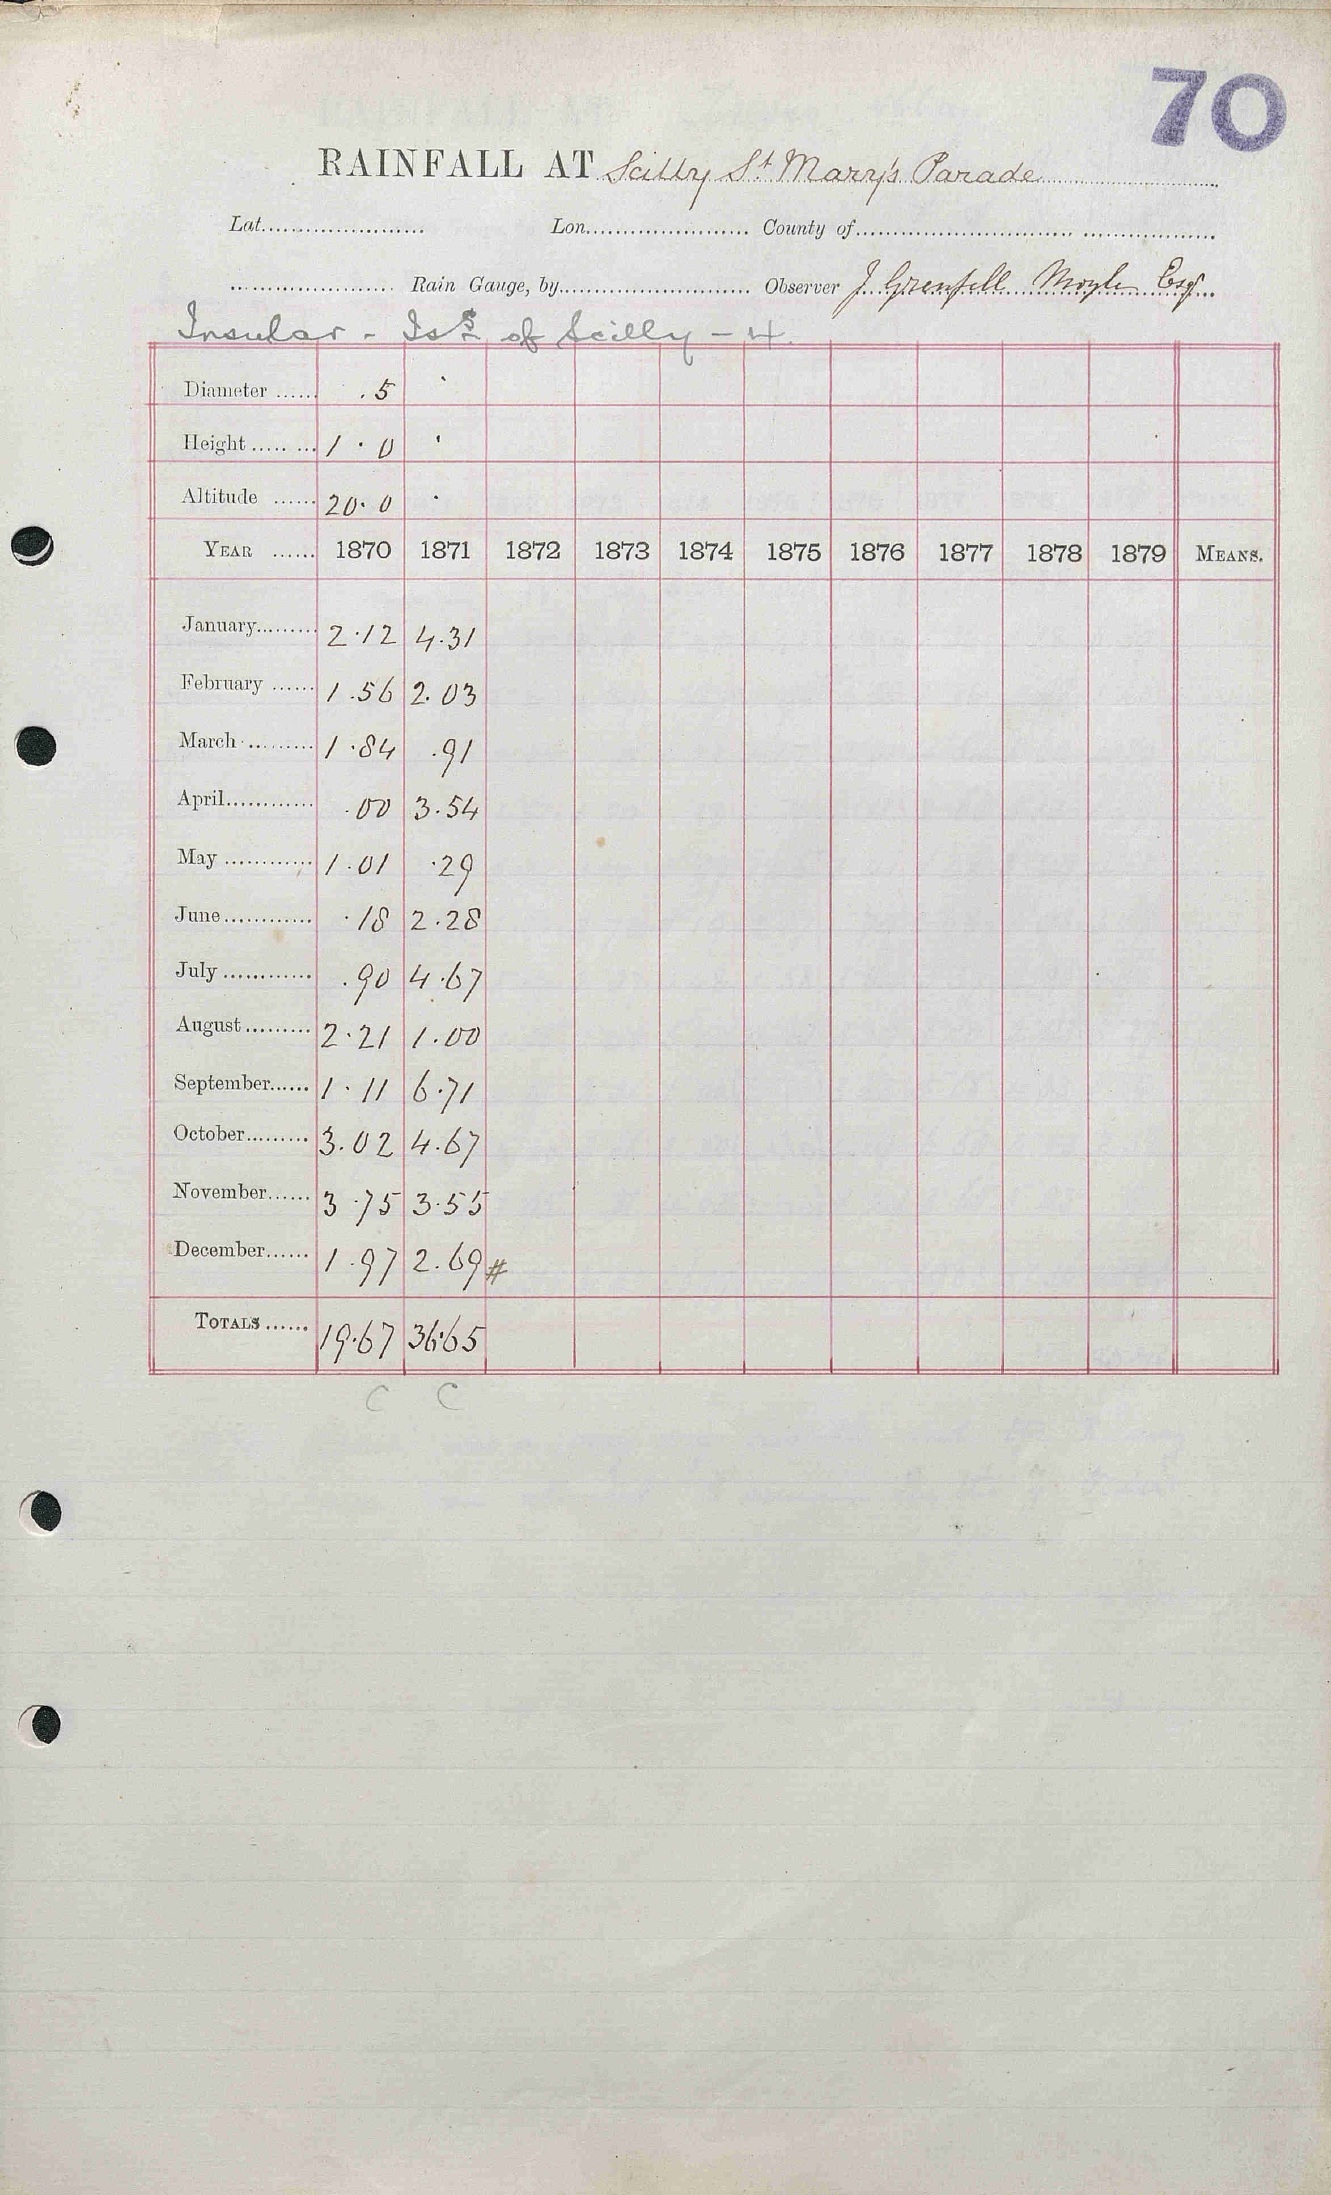 70
RAINFALL AT Scilly St Mary's Parade
Lat. Lon. County of
Rain Gauge, by Observer J. Grenfell Moyle Esqr
Insular - Iss of Scilly - 4.
Diameter ...... .5 '
Height ........ 1.0 '
Altitude ...... 20.0 '
YEAR ...... 1870 1871 1872 1873 1874 1875 1876 1877 1878 1879 MEANS.
January......... 2.12 4.31
February ...... 1.56 2.03
March ......... 1.84 .91
April............ .00 3.54
May ............ 1.01 .29
June............ .18 2.28
July ............ .90 4.67
August ......... 2.21 1.00
September...... 1.11 6.71
October......... 3.02 4.67
November...... 3.75 3.55
December...... 1.97 2.69 #
TOTALS ...... 19.67 36.65
C C